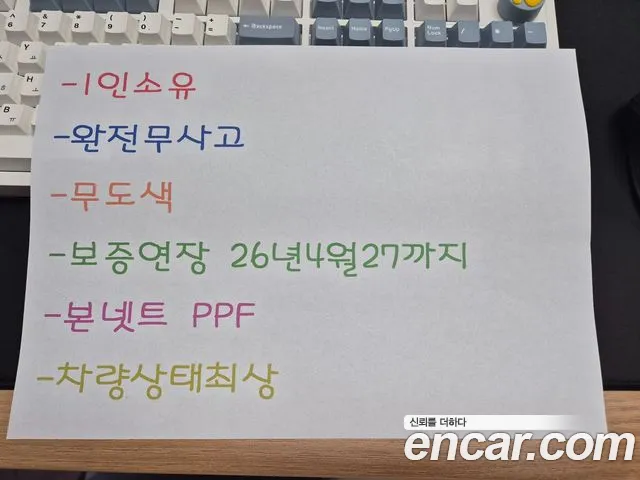 -1인소유
-완전무사고
-무도색
-보증연장 26년4월27까지
-본넷트 PPF
-차량상태최상
신뢰를 더하다
encar.com
Backspace
Insert Home PgUp Num Lock / * -